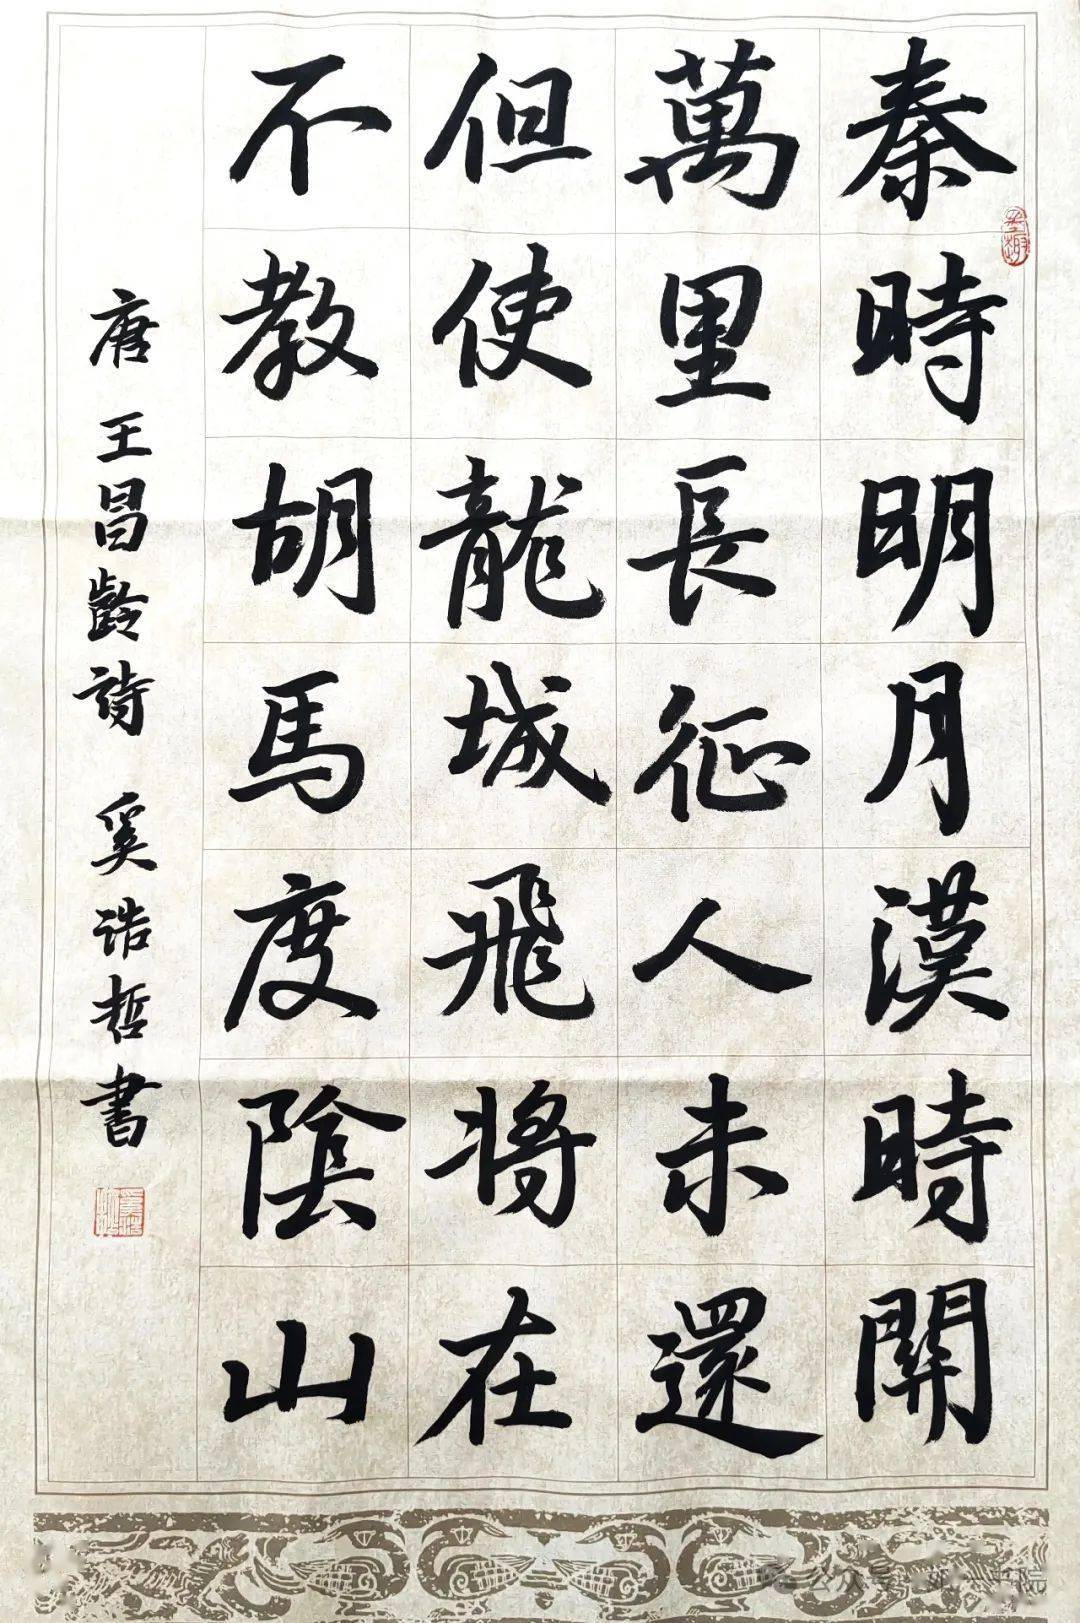 秦時明月漢時開
萬里長征人未還
但使龍城飛將在
不教胡馬度陰山
唐 王昌齡詩 奚浩哲書
公众号